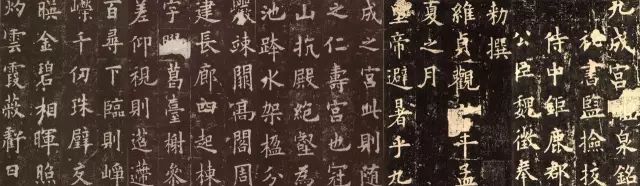 九成宮泉銘
秘書監檢校
侍中鉅鹿郡
公臣魏徵奉
勑撰
維貞觀年孟
夏之月
皇帝避暑乎九
成之宮此則隨
之仁壽宮也冠
山抗殿絕壑為
池跨水架楹分
巖竦闕高閣周
建長廊四起棟
宇葛臺榭參
差仰視則迢遰
百尋下臨則崢
嶸千仞珠璧交
暎金碧相暉照
灼雲霞蔽虧日